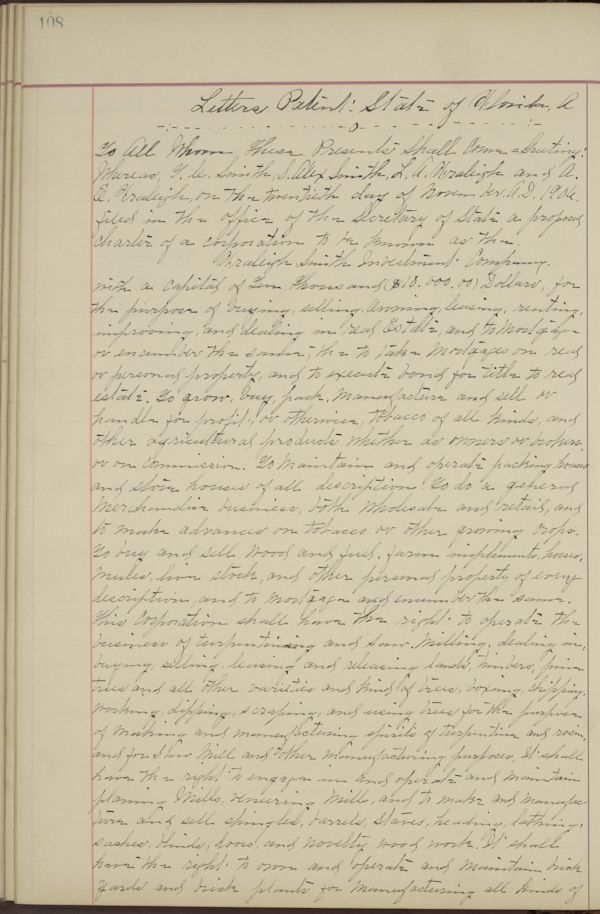 108
Letters Patent: State of Florida, A
To All Whom These Presents Shall Come = Greeting:
Whereas, T. A. Smith, J. Alex Smith, L. A. Fraleigh and A.
E. Fraleigh, on the twentieth day of November A.D. 1906.
filed in the office of the Secretary of State a proposed
charter of a corporation to be known as the
Fraleigh Smith Investment Company.
with a capital of Ten Thousand ($10.000.00) Dollars, for
the purpose of buying, selling, owning, leasing, renting,
improving, and dealing in real Estate, and to mortgage
or encumber the same, the to take mortgages on real
or personal property, and to execute bond for title to real
estate. To grow, buy, pack, manufacture and sell or
handle for profit, or otherwise, tobacco of all kinds, and
other agricultural products whether as owners or brokers,
or on commission. To maintain and operate packing houses
and store houses of all description. To do a general
Merchandise business, both wholesale and retail, and
to make advances on tobacco or other growing crops.
To buy and sell wood and fuel, farm impliments, horses,
mules, live stock, and other personal property of every
description, and to mortgage and encumber the same.
This Corporation shall have the right to operate the
business of turpentining and saw milling, dealing in,
buying, selling, leasing and releasing lands, timbers, pine
trees and all other varieties and kind of trees, boxing, chipping,
working, dipping, scraping, and using trees for the purpose
of making and manufacturing spirits of turpentine and rosin,
and for Saw Mill and other manufacturing purposes. It shall
have the right to engage in and operate and maintain
planing Mills, veneering Mills, and to make and manufac-
ture and sell shingles, barrels, staves, heading, lathing,
sashes, blinds, doors, and novelty wood work. It shall
have the right to own and operate and maintain brick
yards and brick plants for manufacturing all kinds of